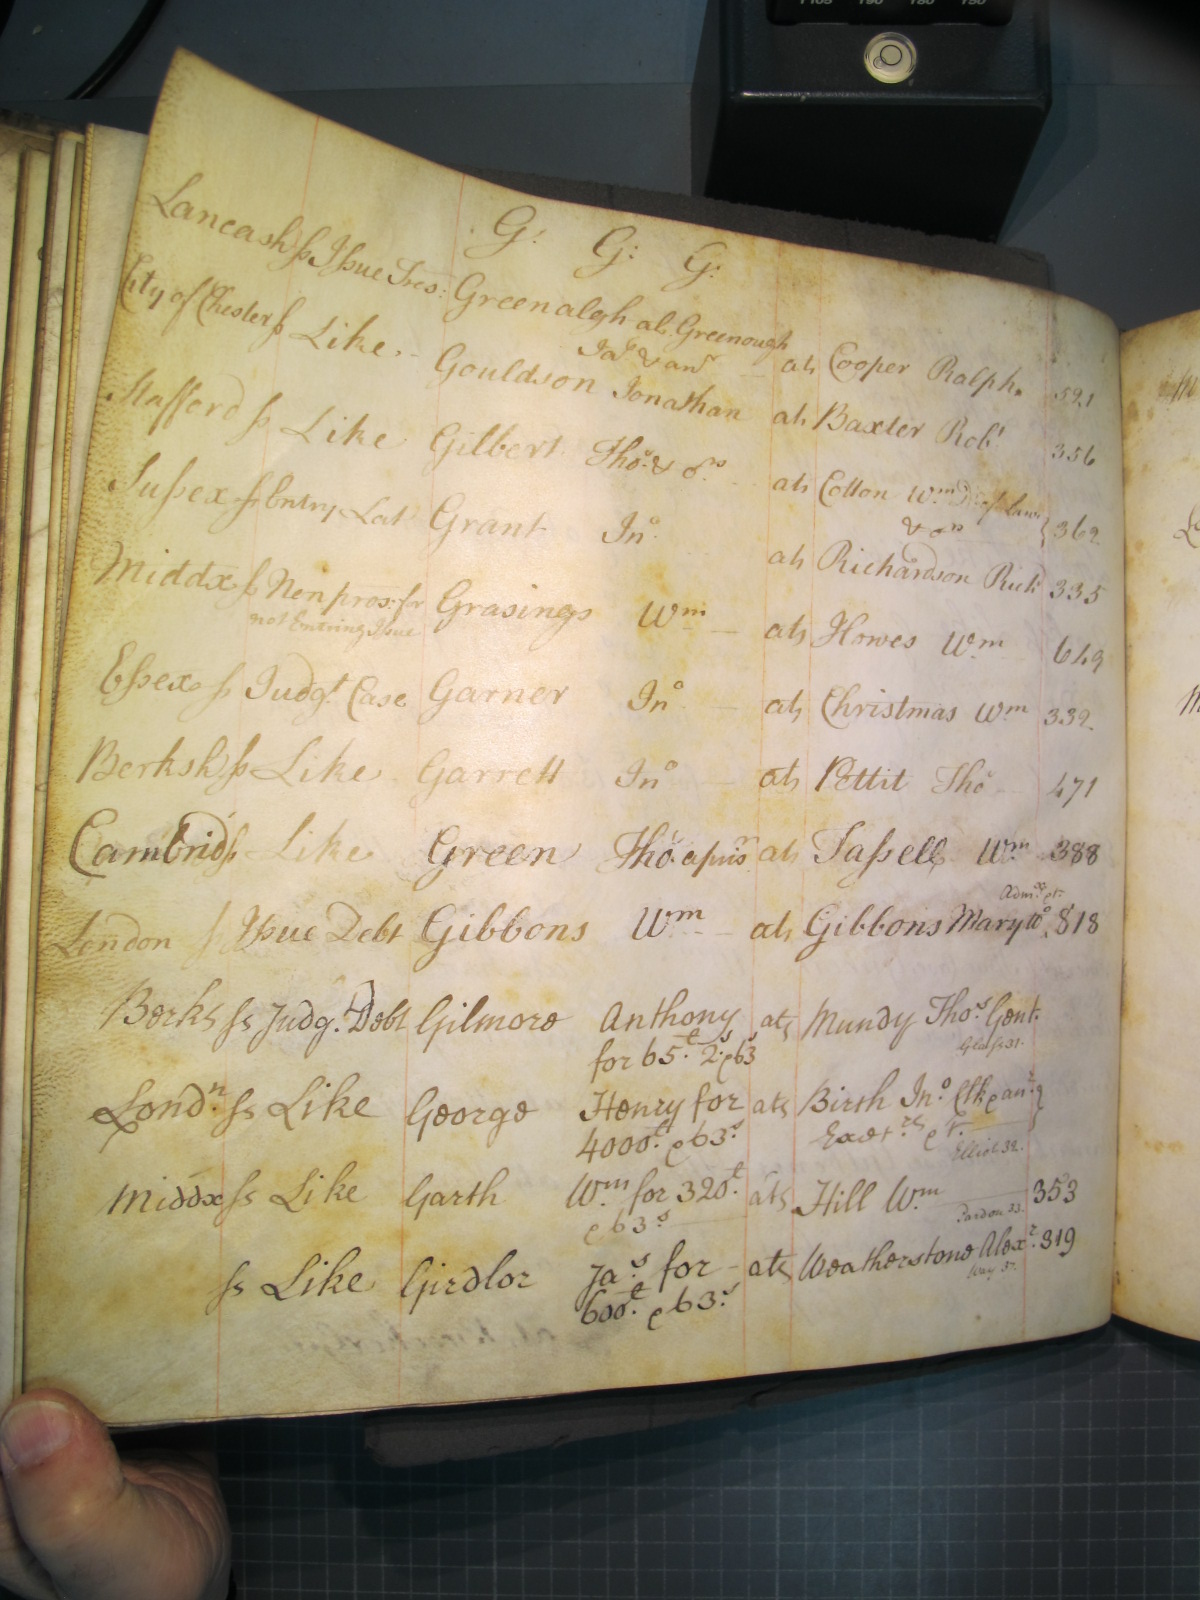 G: G: G:
Lancash ss Issue Tres: Greenalgh al. Greenough
Jas & an.r ats Cooper Ralph. 591
City of Chester ss Like. Gouldson Jonathan ats Baxter Robt 356
Stafford ss Like Gilbert Thos: & ors ats Cotton Wm
& or 362
Sussex ss Entry Lat Grant Jno ats Richardson Rich 335
Middx ss Non pros: for Grasings Wm ats Howes Wm 649
not Entring Issue
Essex ss Judgt Case Garner Jno ats Christmas Wm 332
Berksh ss Like Garrett Jno ats Pettit Tho 471
Cambrid ss Like Green Tho: ats Tassell Wm 388
Admx &c.
London ss Issue Debt Gibbons Wm ats Gibbons Mary 818
Berks ss Judg. Debt Gilmore Anthony ats Mundy Thos Gent.
for 65£. 2s & 63s 31.
Londn. ss Like George Henry for ats Birth Jno. Clk & anr.
4000£ & 63s. Exetrs & c.
Elliot 32.
Middx ss Like Garth Wm for 320£. ats Hill Wm 353
& 63s Pardon 33.
ss Like Girdler Jas. for ats Weatherstone Alexr. 319
600£. & 63s. Way 37.